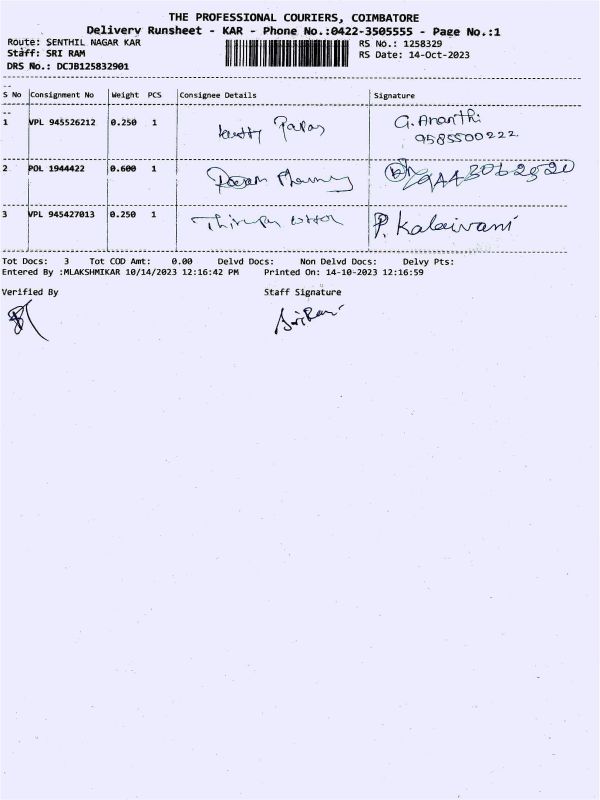 THE PROFESSIONAL COURIERS, COIMBATORE
Delivery Runsheet - KAR - Phone No.:0422-3505555 - Page No.:1
Route: SENTHIL NAGAR KAR
RS No.: 1258329
Staff: SRI RAM
RS Date: 14-Oct-2023
DRS No.: DCJB125832901
S No Consignment No Weight PCS Consignee Details Signature
1 VPL 945526212 0.250 1 G. Ananthi
9585500222
2 POL 1944422 0.600 1
3 VPL 945427013 0.250 1 P. Kalaivani
Tot Docs: 3 Tot COD Amt: 0.00 Delvd Docs: Non Delvd Docs: Delvy Pts:
Entered By :MLAKSHMIKAR 10/14/2023 12:16:42 PM Printed On: 14-10-2023 12:16:59
Verified By Staff Signature